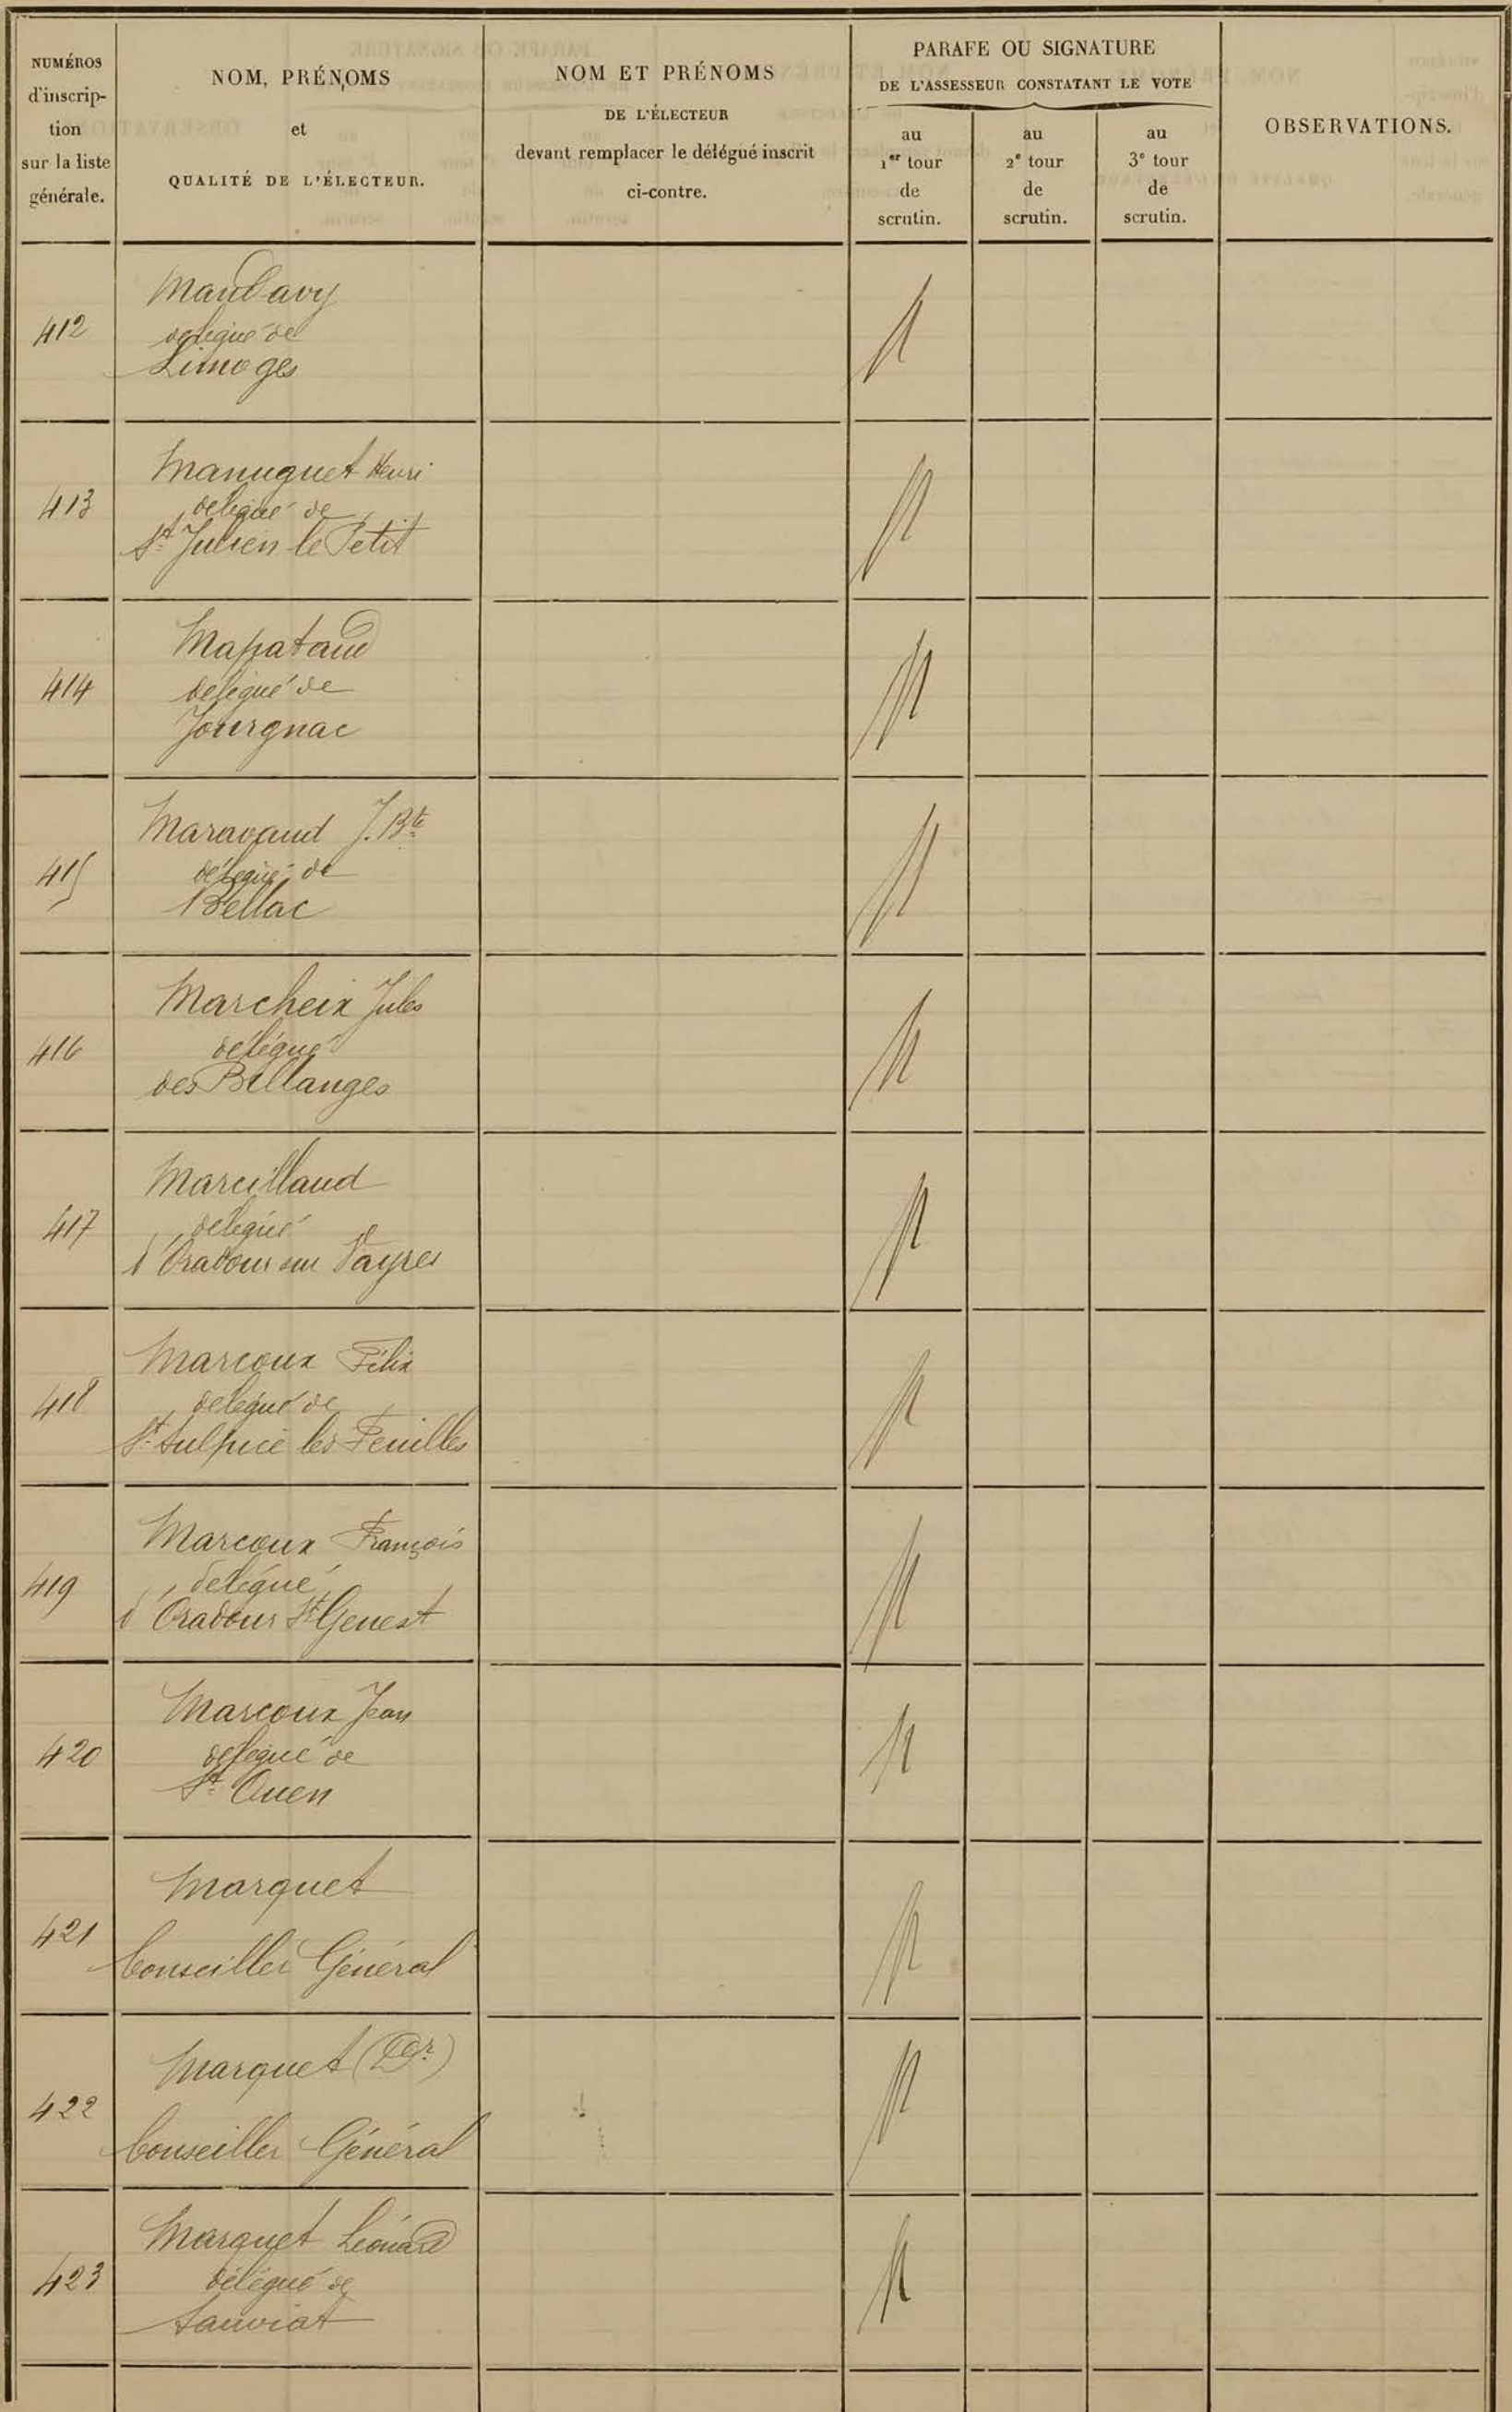 NUMÉROS
d'inscrip-
tion
sur la liste
générale.
NOM, PRÉNOMS
et
QUALITÉ DE L'ÉLECTEUR.
NOM ET PRÉNOMS
DE L'ÉLECTEUR
devant remplacer le délégué inscrit
ci-contre.
PARAFE OU SIGNATURE
DE L'ASSESSEUR CONSTATANT LE VOTE
au
1er tour
de
scrutin.
au
2e tour
de
scrutin.
au
3e tour
de
scrutin.
OBSERVATIONS.
412
Mandavy
délégué de
Limoges
413
Manuguet Henri
délégué de
St Julien le Petit
414
Mapataud
délégué de
Jourgnac
415
Maravaud J. Bte
délégué de
Bellac
416
Marcheix Jules
délégué
des Billanges
417
Marcillaud
délégué
d'Oradour sur Vayres
418
Marcoux Félix
délégué de
St Sulpice les Feuilles
419
Marcoux François
délégué
d'Oradour St Genest
420
Marcoux Jean
délégué de
St Ouen
421
Marquet
Conseiller Général
422
Marquet (Dr)
Conseiller Général
423
Marquet Léonard
délégué de
Sauviat